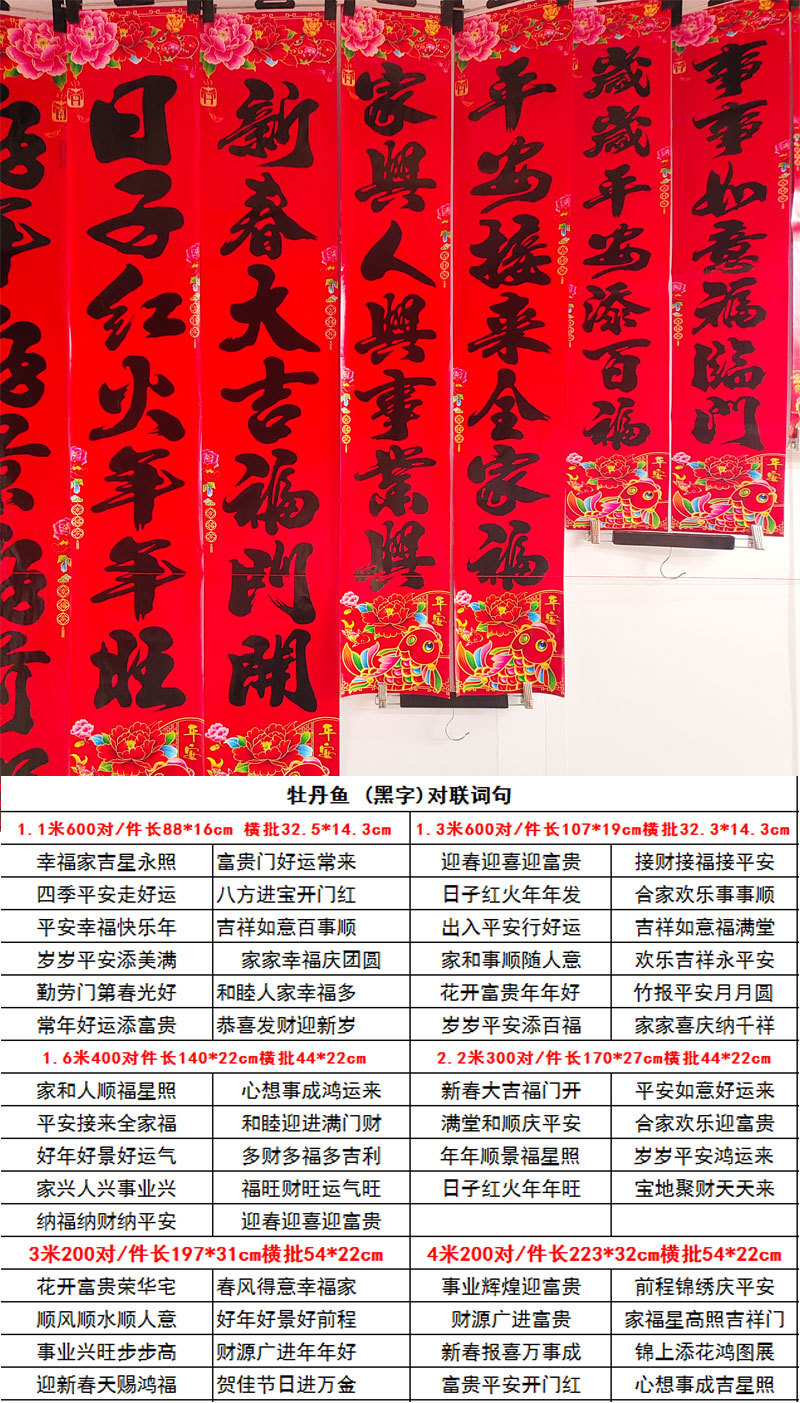 事事如意福臨門
歲歲平安添百福
平安接来全家福
家興人興事業興
新春大吉福門開
日子红火年年旺
牡丹鱼 (黑字)对联词句
1.1米600对/件长88*16cm 横批32.5*14.3cm 1.3米600对/件长107*19cm横批32.3*14.3cm
幸福家吉星永照 富贵门好运常来 迎春迎喜迎富贵 接财接福接平安
四季平安走好运 八方进宝开门红 日子红火年年发 合家欢乐事事顺
平安幸福快乐年 吉祥如意百事顺 出入平安行好运 吉祥如意福满堂
岁岁平安添美满 家家幸福庆团圆 家和事顺随人意 欢乐吉祥永平安
勤劳门第春光好 和睦人家幸福多 花开富贵年年好 竹报平安月月圆
常年好运添富贵 恭喜发财迎新岁 岁岁平安添百福 家家喜庆纳千祥
1.6米400对件长140*22cm横批44*22cm 2.2米300对/件长170*27cm横批44*22cm
家和人顺福星照 心想事成鸿运来 新春大吉福门开 平安如意好运来
平安接来全家福 和睦迎进满门财 满堂和顺庆平安 合家欢乐迎富贵
好年好景好运气 多财多福多吉利 年年顺景福星照 岁岁平安鸿运来
家兴人兴事业兴 福旺财旺运气旺 日子红火年年旺 宝地聚财天天来
纳福纳财纳平安 迎春迎喜迎富贵
3米200对/件长197*31cm横批54*22cm 4米200对/件长223*32cm横批54*22cm
花开富贵荣华宅 春风得意幸福家 事业辉煌迎富贵 前程锦绣庆平安
顺风顺水顺人意 好年好景好前程 财源广进富贵 家福星高照吉祥门
事业兴旺步步高 财源广进年年好 新春报喜万事成 锦上添花鸿图展
迎新春天赐鸿福 贺佳节日进万金 富贵平安开门红 心想事成吉星照